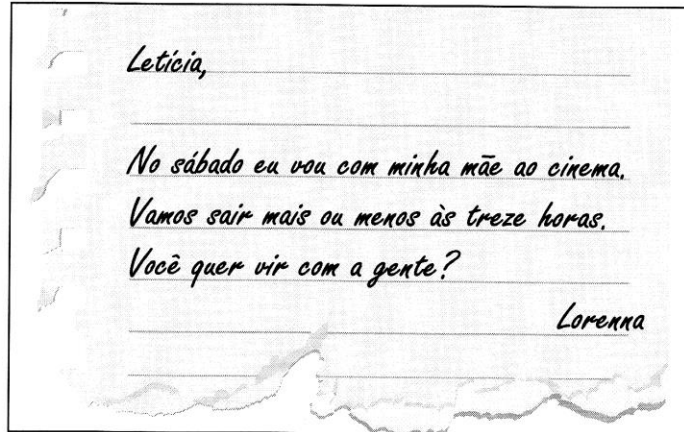 Letícia,
No sábado eu vou com minha mãe ao cinema.
Vamos sair mais ou menos às treze horas.
Você quer vir com a gente?
Lorenna